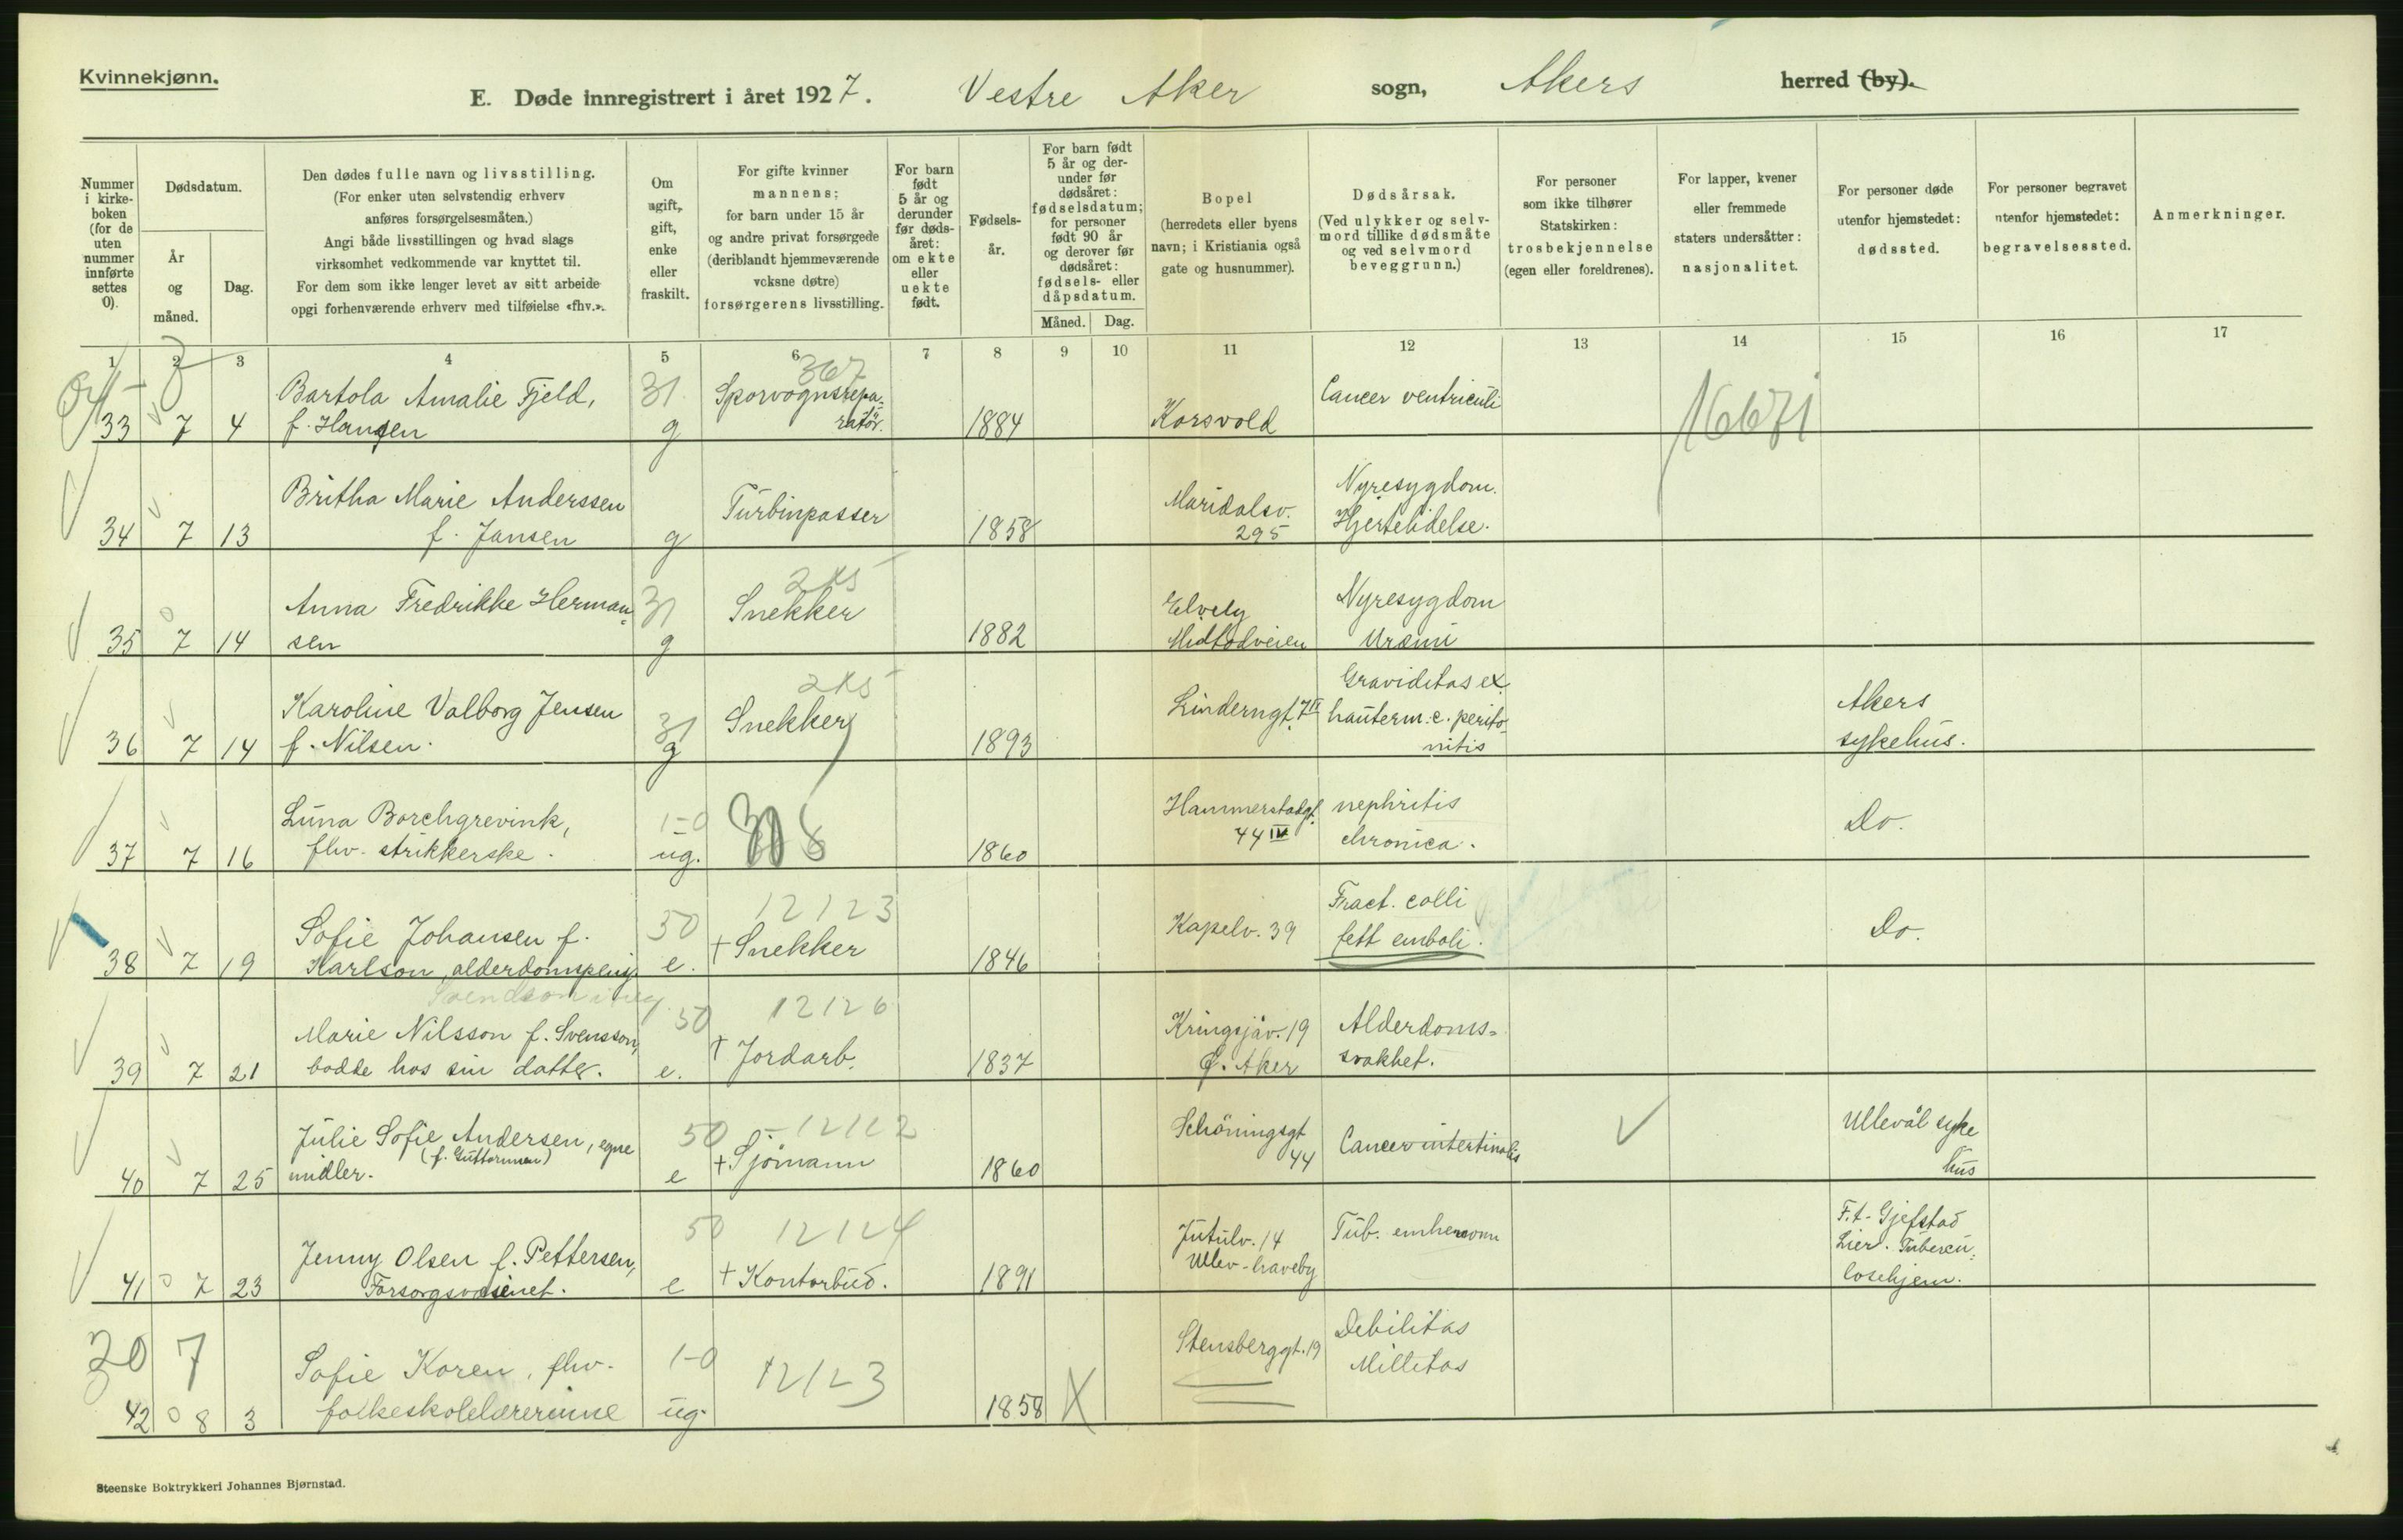 Kvinnekjønn.
E. Døde innregistrert i året 1927. Vestre Aker sogn, Akers herred (by).
Nummer i kirkeboken (for de uten nummer innførte settes 0).
Dødsdatum.
År og måned.
Dag.
Den dødes fulle navn og livsstilling.
(For enker uten selvstendig erhverv
anføres forsørgelsesmåten.)
Angi både livsstillingen og hvad slags
virksomhet vedkommende var knyttet til.
For dem som ikke lenger levet av sitt arbeide
opgi forhenværende erhverv med tilføielse «fhv.».
Om ugift, gift, enke eller fraskilt.
For gifte kvinner
mannens;
for barn under 15 år
og andre privat forsørgede
(deriblandt hjemmeværende
voksne døtre)
forsørgerens livsstilling.
For barn født 5 år og derunder før dødsåret: om ekte eller uekte født.
Fødselsår.
For barn født 5 år og derunder før dødsåret: fødselsdatum; for personer født 90 år og derover før dødsåret: fødsels- eller dåpsdatum.
Måned. Dag.
Bopel
(herredets eller byens
navn; i Kristiania også
gate og husnummer).
Dødsårsak.
(Ved ulykker og selvmord tillike dødsmåte
og ved selvmord
beveggrunn.)
For personer
som ikke tilhører
Statskirken:
trosbekjennelse
(egen eller foreldrenes).
For lapper, kvener
eller fremmede
staters undersåtter:
nasjonalitet.
For personer døde
utenfor hjemstedet:
dødssted.
For personer begravet
utenfor hjemstedet:
begravelsessted.
Anmerkninger.
1 2 3 4 5 6 7 8 9 10 11 12 13 14 15 16 17
367
16671
33 7 4 Bartola Amalie Fjeld, f. Hansen 31 g Sporvognsrepa-ratör. 1884 Korsvold Cancer ventriculi
34 7 13 Britha Marie Anderssen f. Jansen g Turbinpasser 1858 Maridalsv. 295 Nyresygdom. Hjertelidelse.
35 7 14 Anna Fredrikke Herman-sen 31 g Snekker 1882 Elvely Nyresygdom Uræmi
36 7 14 Karoline Valborg Jensen f. Nilsen. 31 g Snekker 1893 Linderngt. 7 II Graviditas ex hauterm. c. perito-nitis Akers sykehus.
37 7 16 Luna Borchgrevink, fhv. strikkerske. 1-0 ug. 1860 Hammerstadgt. 44 IV nephritis chronica. Do.
38 7 19 Sofie Johansen f. Karlson, alderdomspensj. 50 e. 12123 † Snekker 1846 Kapelv. 39 Fract. colli fett emboli. Do.
39 7 21 Marie Nilsson f. Svensson, bodde hos sin datter. 50 e. 12126 † Jordarb. 1837 Kringsjåv. 19 Ø. Aker Alderdoms-svakhet.
40 7 25 Julie Sofie Andersen, egne midler. (f. Guttormsen) 50 e † Sjömann 1860 Schöningsgt 44 Cancer intestinalis Ullevål syke hus
41 7 23 Jenny Olsen f. Pettersen, Forsorgsvæsenet. 50 e 12124 † Kontorbud. 1891 Jutulv. 14 Ullev-haveby Tub. F.t. Gjefstad Lier. Tubercu-losehjem.
30 7
42 8 3 Sofie Koren, fhv. folkeskolelærerinne 1-0 ug. 12123 1858 X Stensberggt. 19 Debilitas
Steenske Boktrykkeri Johannes Bjørnstad.